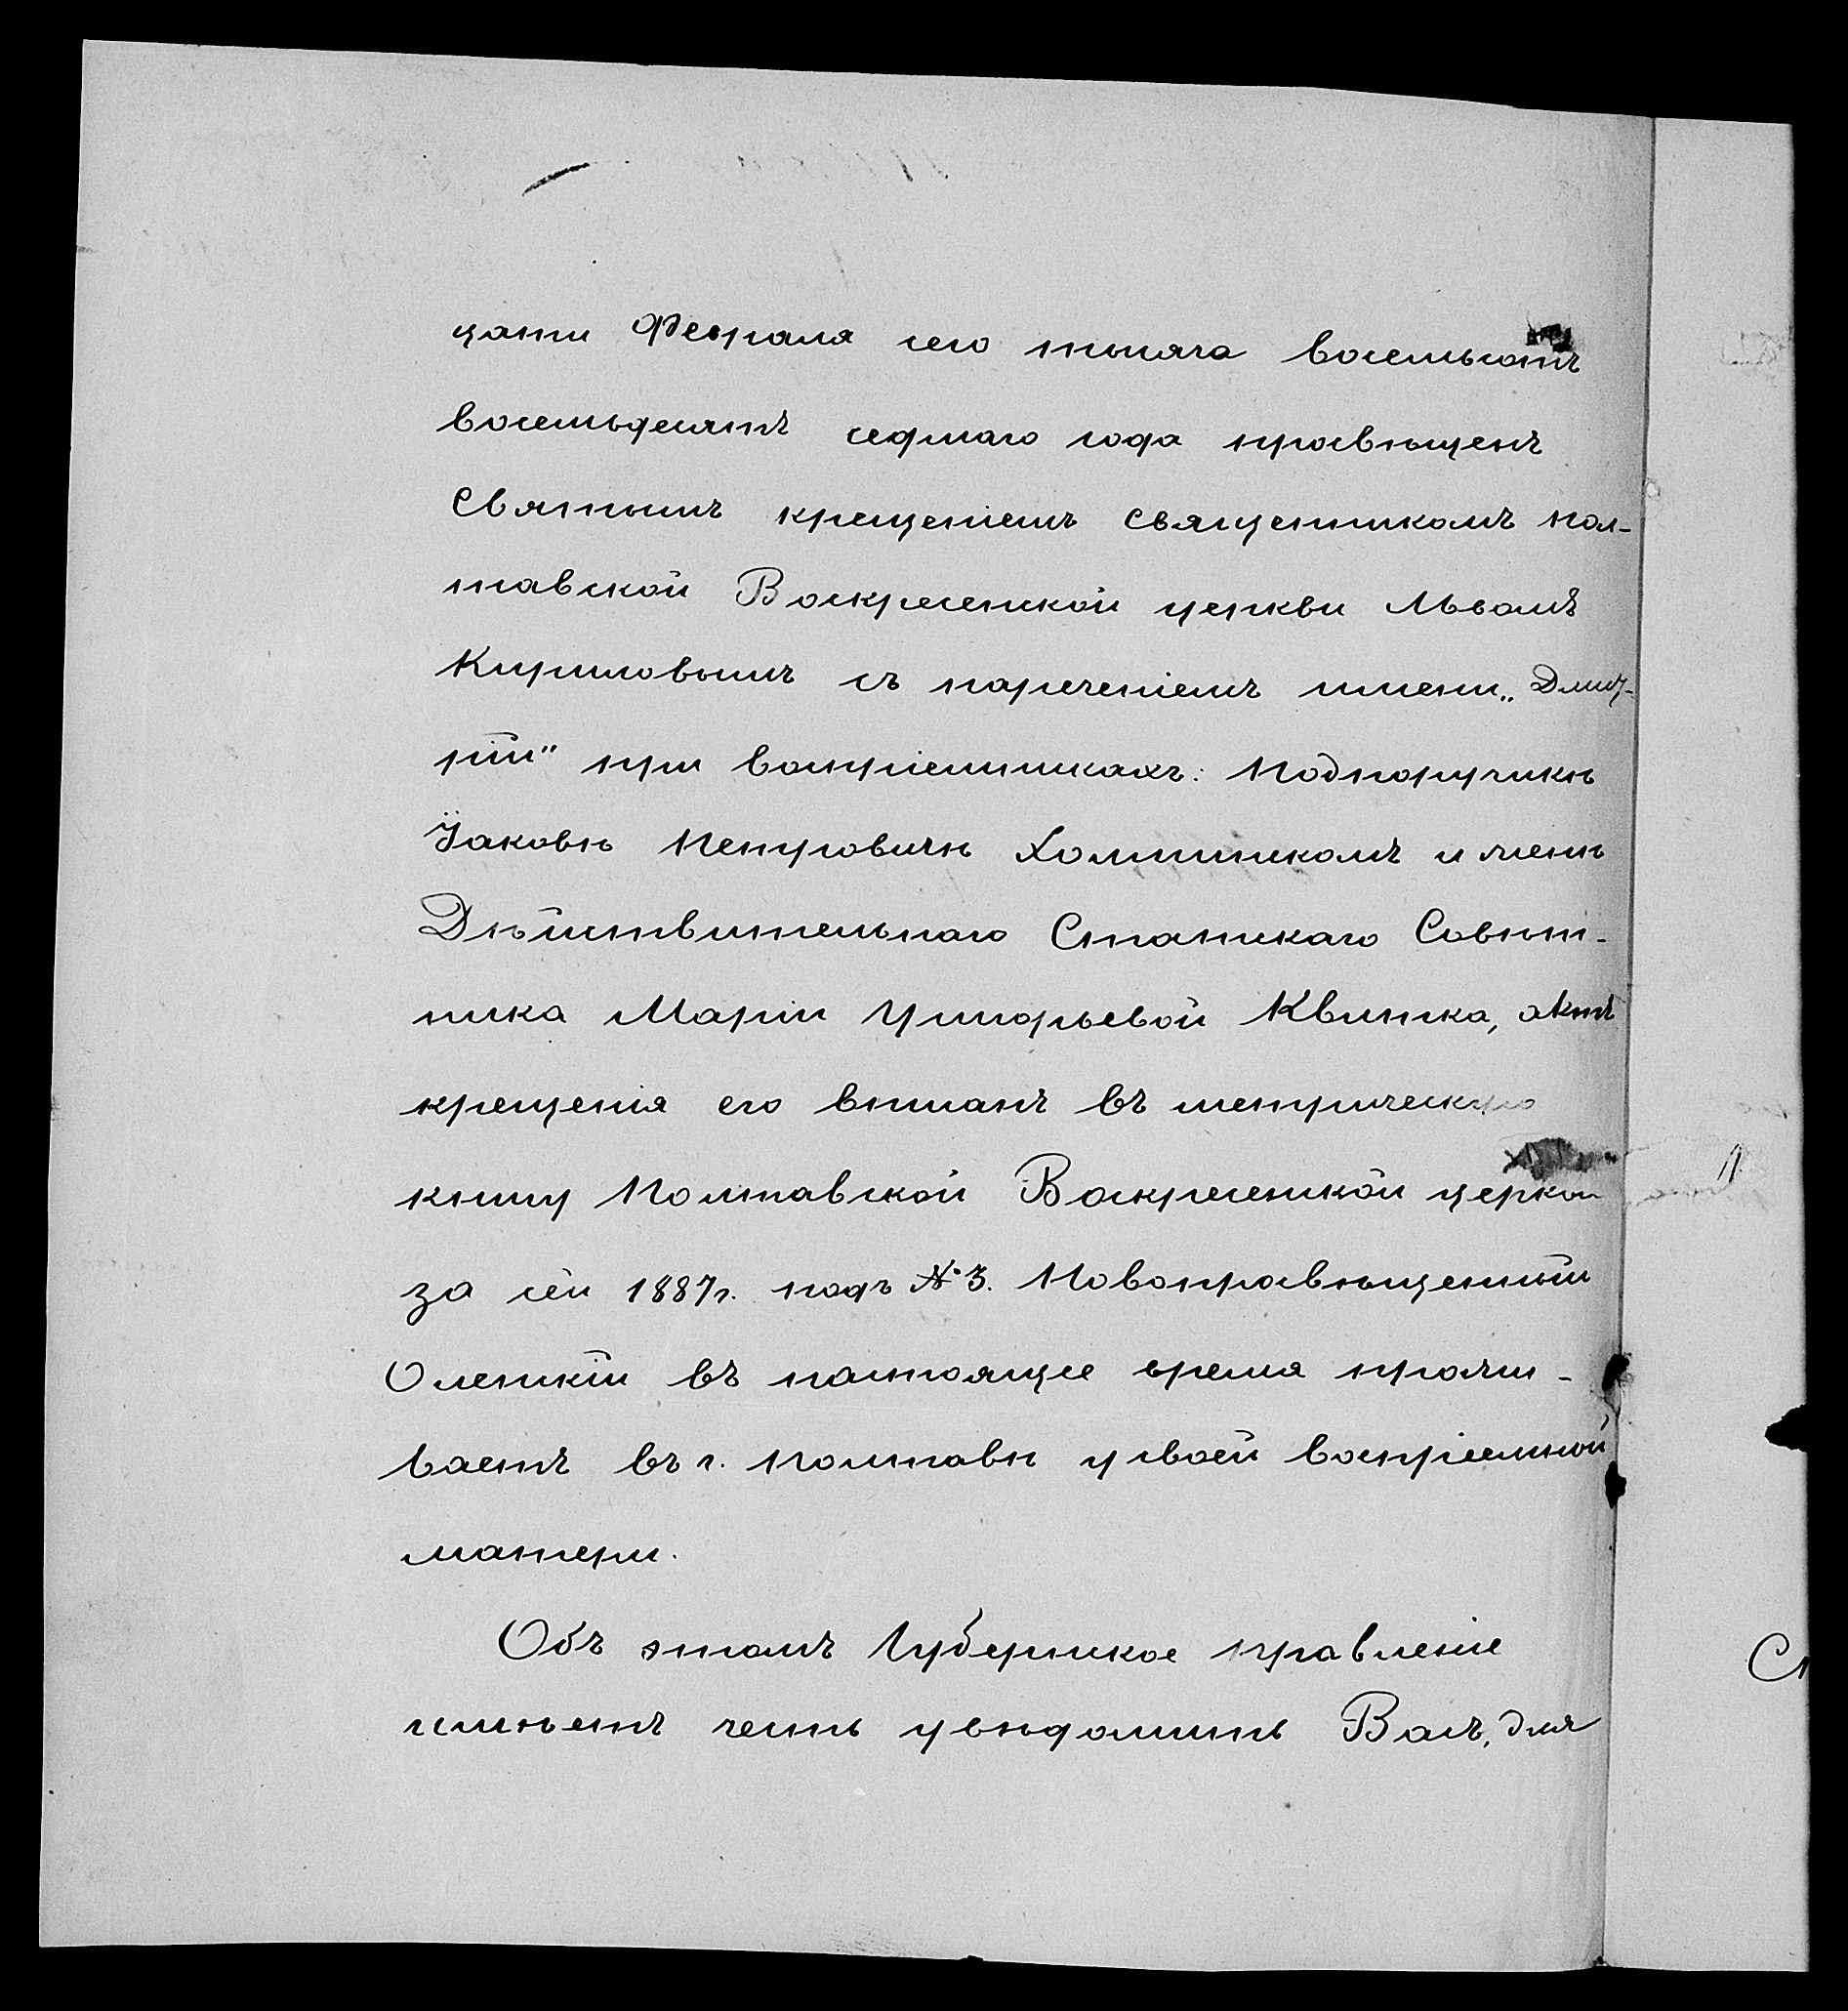 цати Февраля сего тысяча восемьсотъ
восемьдесятъ седмаго года просвѣщенъ
Святымъ крещеніемъ священникомъ пол-
тавской Воскресенской церкви Львомъ
Кириловымъ съ нареченіемъ имени „Дмит-
рій" при воспріемникахъ: Подпоручикѣ
Іаковѣ Петровичѣ и женѣ
Дѣйствительнаго Статскаго Совѣт-
ника Маріи Григорьевой Квитка, актъ
крещенія его вписанъ въ метрическую
книгу Полтавской Воскресенской церкви
за сей 1887 г. подъ № 3. Новопросвѣщенный
Оленскій въ настоящее время прожи-
ваетъ въ г. Полтавѣ у своей воспріемной
матери.
Объ этомъ Губернское правленіе
имѣетъ честь увѣдомить Васъ, для